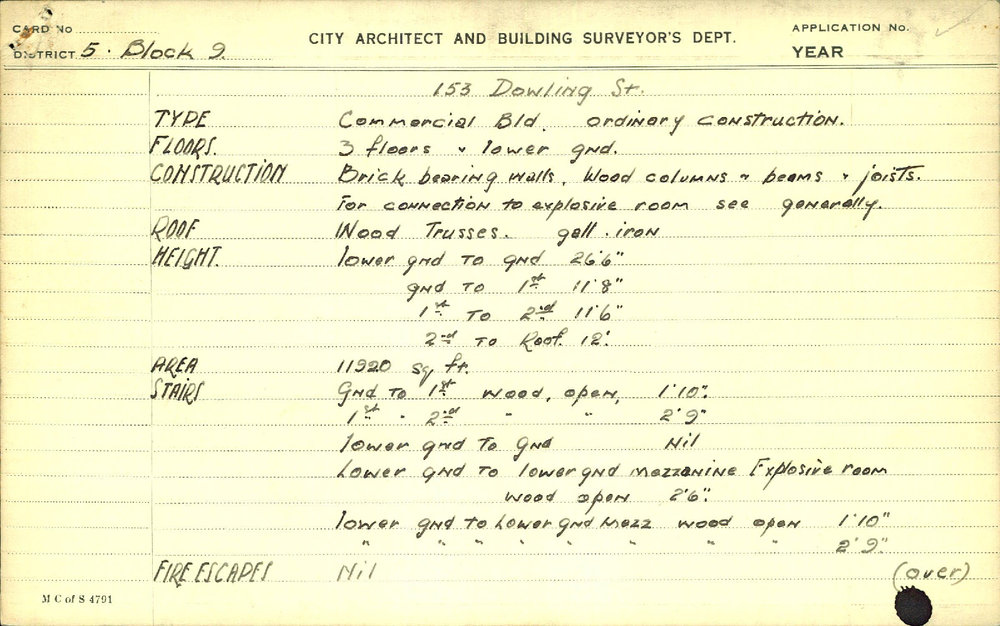 CARD No
DISTRICT 5. Block 9.
CITY ARCHITECT AND BUILDING SURVEYOR'S DEPT.
APPLICATION No.
YEAR
153 Dowling St.
TYPE Commercial Bld. ordinary construction.
FLOORS. 3 floors & lower gnd.
CONSTRUCTION Brick bearing walls, Wood columns & beams & joists.
For connection to explosive room see generally.
ROOF Wood Trusses. gall. iron
HEIGHT. lower gnd to gnd 26'6"
gnd to 1st 11'8"
1st to 2nd 11'6"
2nd to Roof. 12'.
AREA 11920 sq ft.
STAIRS Gnd to 1st wood, open, 1'10".
1st " 2nd " " 2'9"
lower gnd to gnd Nil
Lower gnd to lower gnd mezzanine Explosive room
wood open 2'6".
lower gnd to Lower gnd Mezz wood open 1'10"
" " " " " " " " 2'9".
FIRE ESCAPES Nil (over)
M C of S 4791